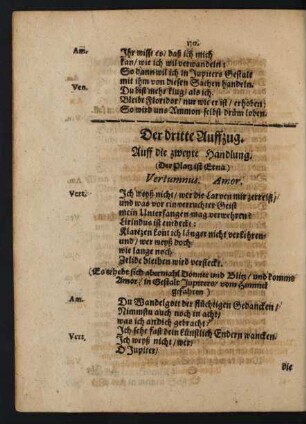 170.
Am. Ihr wisst es/ daß ich mich
kan/ wie ich wil verwandeln:
So dann wil ich in Jupiters Gestalt
mit ihm von diesen Sachen handeln.
Ven. Du bist mehr klug/ als ich.
Bleibt Floridor/ nur wie er ist/ erhoben;
So wird uns Ammon selbst drüm loben.
Der dritte Auffzug.
Auff die zweyte Handlung.
(Der Platz ist Etna.)
Vertumnus. Amor.
Vert. Ich weyß nicht/ wer die Larven mir zerreißt/
und was vor ein verruchter Geist
mein Unterfangen mag verwehren
Lirindus ist entdeckt:
Klatzen kont ich länger nicht verkehren/
und/ wer weyß doch
wie lange noch
Zelide bleiben wird versteckt.
(Es erhebe sich abermahl Donner und Blitz/ und kommt
Amor/ in Gestalt Jupiters/ vom Himmel
gefahren)
Am. Du Wandelgott der flüchtigen Gedancken/
Nimmstu auch noch in acht/
was ich artdich gebracht/
Ich sehe fast dein künstlich Endern wancken/
Vert. Ich weyß nicht/ wer/
O Jupiter/
die